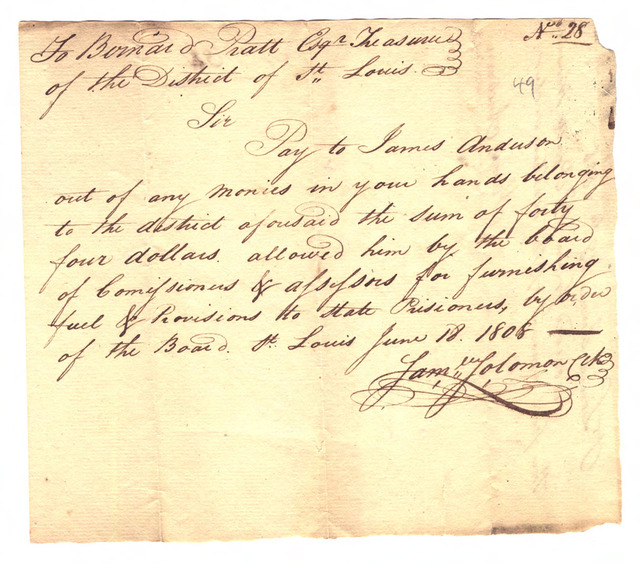 Nuo 28
To Bernard Pratt Esqr. Treasurer
of the District of St. Louis.
49
Sir
Pay to James Anderson
out of any monies in your hands belonging
to the district aforesaid the sum of forty
four dollars. allowed him by the board
of Comissioners & assessors for furnishing
fuel & Provisions to State Prisioners, by order
of the Board. St. Louis June 18. 1808
Saml. Solomon Clk